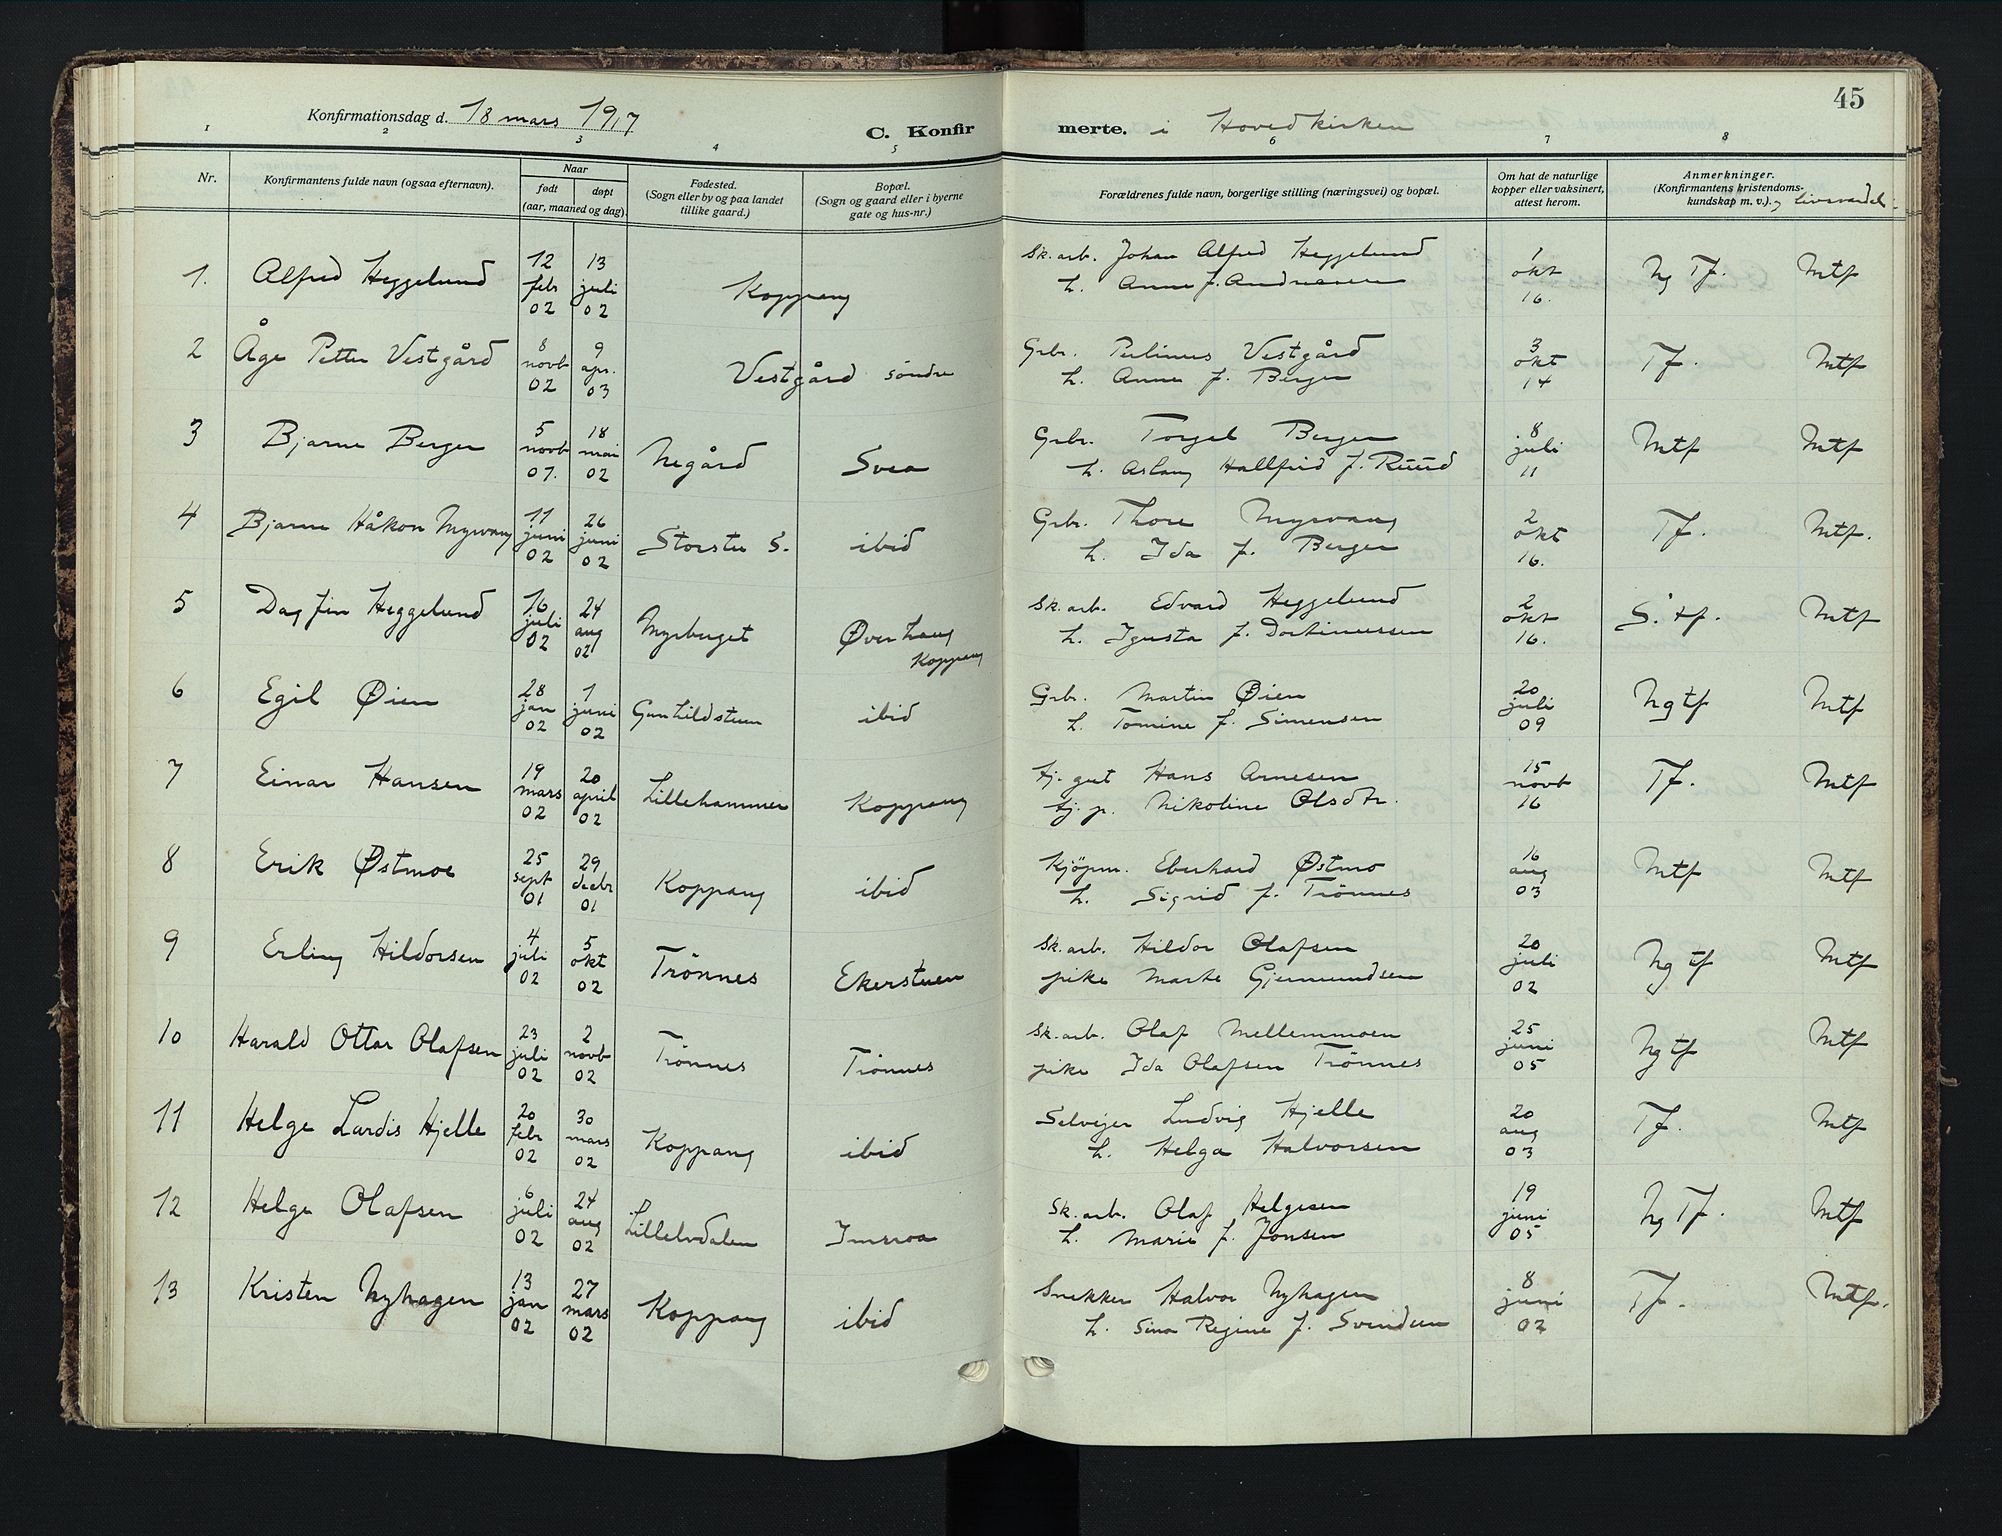 45
Konfirmationsdag d. 18 mars 1917
C. Konfirmerte. i Hovedkirken
1 2 3 4 5 6 7 8
Nr.
Konfirmantens fulde navn (ogsaa efternavn).
Naar
født døpt
(aar, maaned og dag).
Fødested.
(Sogn eller by og paa landet
tillike gaard.)
Bopæl.
(Sogn og gaard eller i byerne
gate og hus-nr.)
Forældrenes fulde navn, borgerlige stilling (næringsvei) og bopæl.
Om hat de naturlige
kopper eller vaksinert,
attest herom.
Anmerkninger.
(Konfirmantens kristendoms-
kundskap m. v.).
1. Alfred Heggelund 12 febr 02 13 juli 02 Koppang
Sk. arb. Johan Alfred Heggelund
h. Anne f. Andreasen
1 okt 16. Ng Tf. Mtf
2 Åge Petter Vestgård 8 novb 02 9 apr. 03 Vestgård søndre
Grb. Perlinus Vestgård
h. Anne f. Berger
3 okt 14 Tf. Mtf
3 Bjarne Berger 5 novb 01. 18 mai 02 Negård Svea
Grb. Torgel Berger
h. Aslaug Hallfrid f. Ruud
8 juli 11 Mtf Mtf
4 Bjarne Håkon Myrvang 11 juni 02 26 juni 02 Storstu S. ibid
Grb. Thore Myrvang
h. Ida f. Berger
2 okt 16. Tf. Mtf.
5 Dagfin Heggelund 16 juli 02 24 aug 02 Myrberget Øverhaug Koppang
Sk. arb. Edvard Heggelund
h. Igusta f. Dortinussen
2 okt 16. S. tf. Mtf
6 Egil Øien 28 jan 02 1 juni 02 Gunhildstuen ibid
Grb. Martin Øien
h. Tomine f. Simensen
20 juli 09 Ng tf Mtf
7 Einar Hansen 19 mars 02 20 april 02 Lillehammer Koppang
tj. gut Hans Arnesen
tj. p. Nikoline Olsdtr.
15 novb 16 Tf. Mtf
8 Erik Østmoe 25 sept 01 29 decbr 01 Koppang ibid
Kjöpm. Eberhard Østmo
h. Sigrid f. Trønnes
16 aug 03 Mtf Mtf
9 Erling Hildorsen 4 juli 02 5 okt 02 Trönnes Ekerstuen
Sk. arb. Hildor Olafsen
pike Marte Gjermundsen
20 juli 02 Ng tf Mtf
10 Harald Ottar Olafsen 23 juli 02 2 novb 02 Trönnes Trönnes
Sk. arb. Olaf Mellemmoen
pike Ida Olafsen Trönnes
25 juni 05 Ng tf Mtf
11 Helge Lardis Hjelle 20 febr 02 30 mars 02 Koppang ibid
Selveier Ludvig Hjelle
h. Helga Halvorsen
20 aug 03 Tf. Mtf
12 Helge Olafsen 6 juli 02 24 aug 02 Lillelvdalen Imsroa
Sk. arb. Olaf Helgesen
h. Marie f. Jonsen
19 juni 05 Ng Tf. Mtf
13 Kristen Nyhagen 13 jan 02 27 mars 02 Koppang ibid
Snekker Halvor Nyhagen
h. Sina Regine f. Svendsen
8 juni 02 Tf. Mtf.